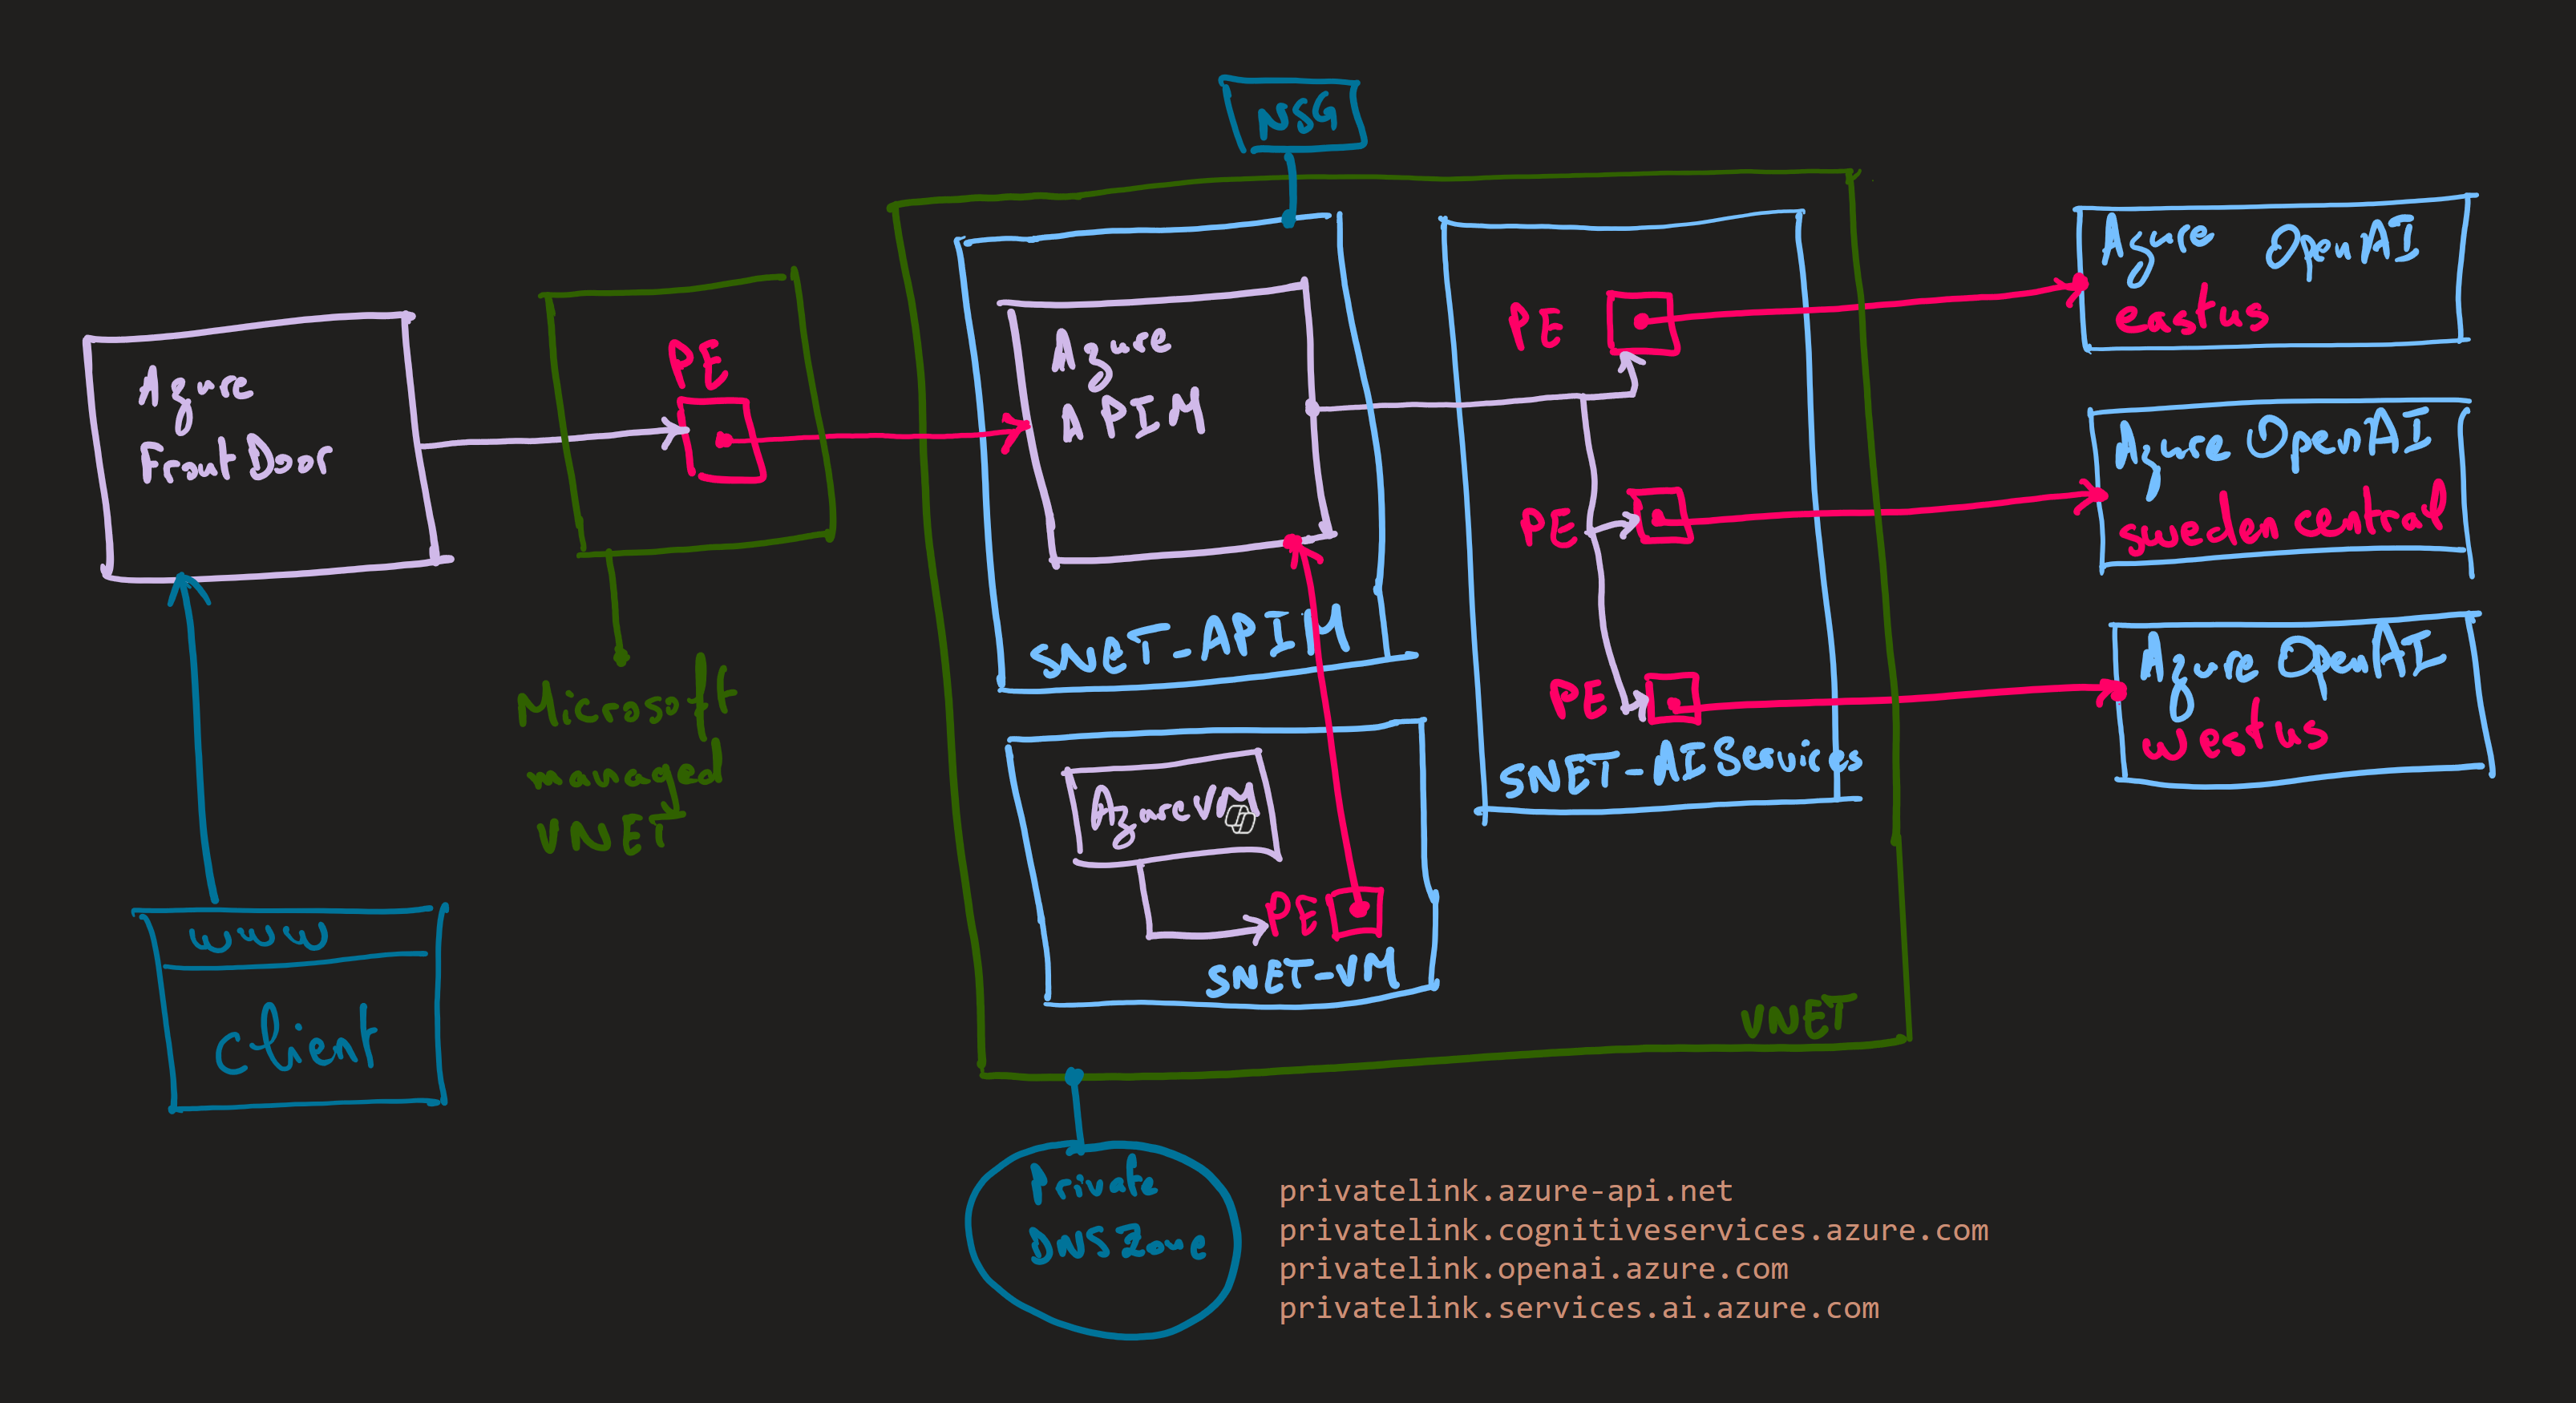 NSG
Azure
FrontDoor
PE
Microsoft
managed
VNET
www
client
Azure
APIM
SNET-APIM
AzureVM
PE
SNET-VM
PE
PE
PE
SNET-AIServices
VNET
Azure OpenAI
eastus
Azure OpenAI
sweden central
Azure OpenAI
westus
Private
DNS Zone
privatelink.azure-api.net
privatelink.cognitiveservices.azure.com
privatelink.openai.azure.com
privatelink.services.ai.azure.com